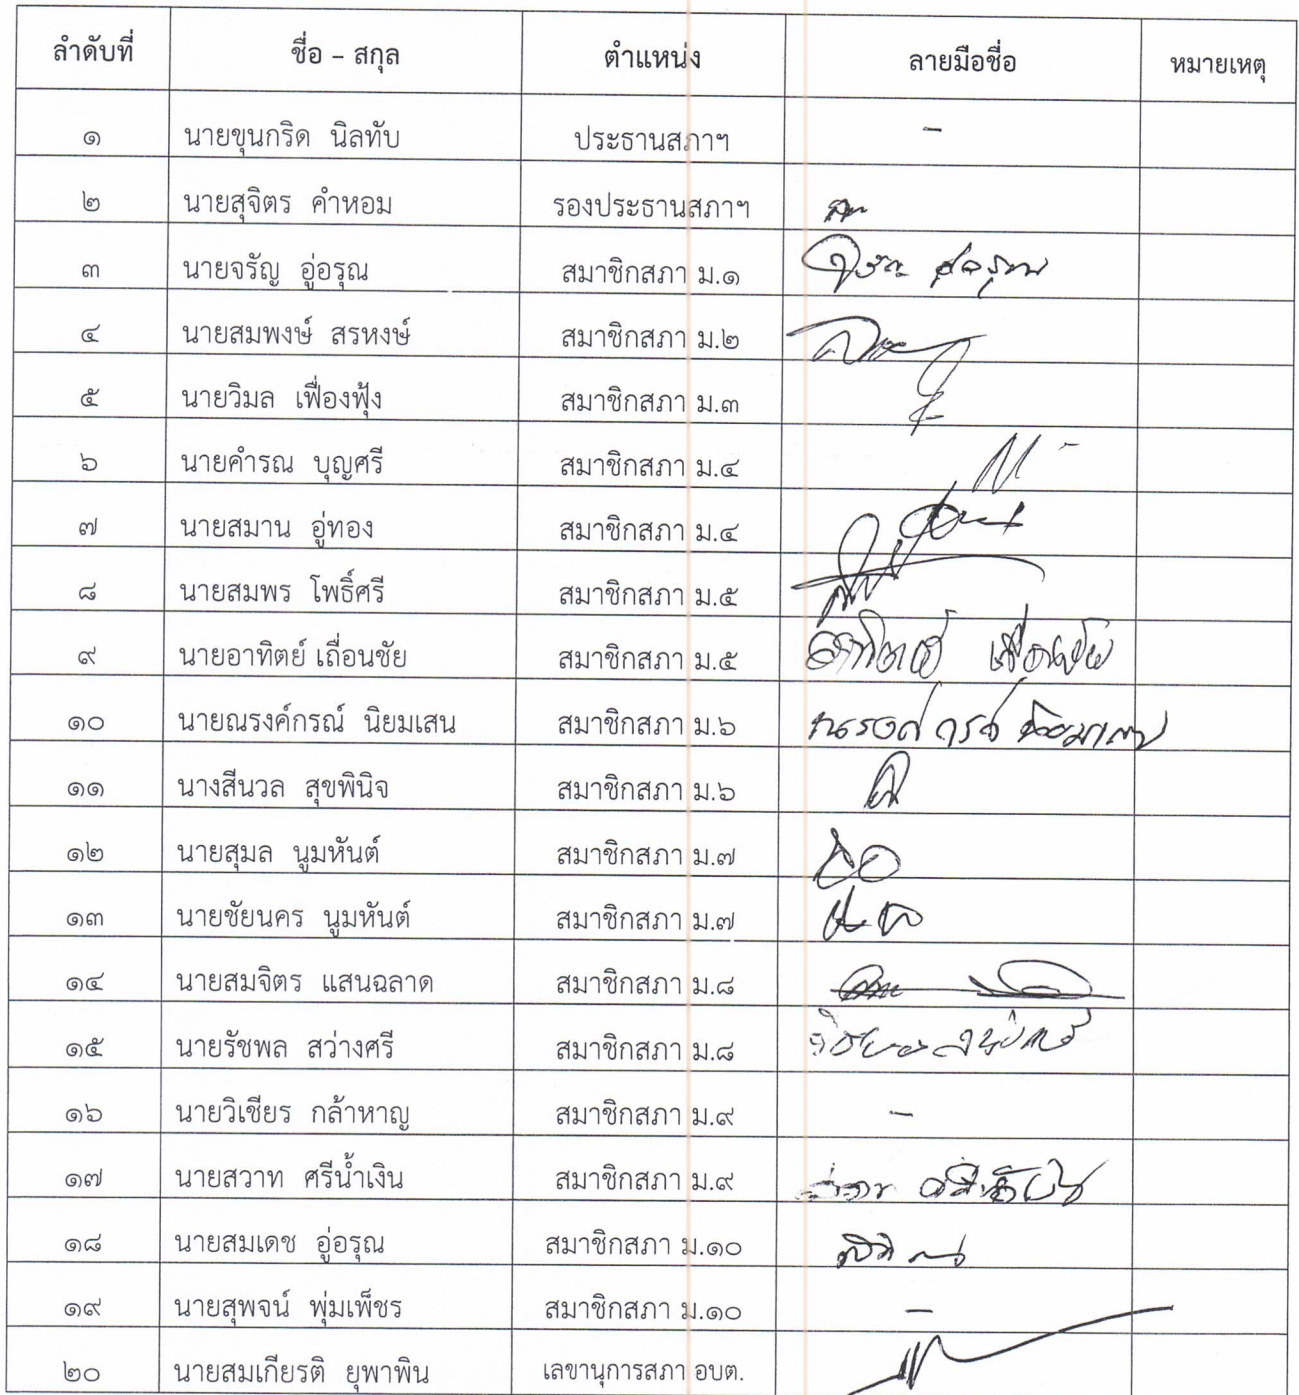 ลำดับที่ ชื่อ – สกุล ตำแหน่ง ลายมือชื่อ หมายเหตุ
๑ นายขุนกริด นิลทับ ประธานสภาฯ -
๒ นายสุจิตร คำหอม รองประธานสภาฯ
๓ นายจรัญ อู่อรุณ สมาชิกสภา ม.๑
๔ นายสมพงษ์ สรหงษ์ สมาชิกสภา ม.๒
๕ นายวิมล เฟื่องฟุ้ง สมาชิกสภา ม.๓
๖ นายคำรณ บุญศรี สมาชิกสภา ม.๔
๗ นายสมาน อู่ทอง สมาชิกสภา ม.๔
๘ นายสมพร โพธิ์ศรี สมาชิกสภา ม.๕
๙ นายอาทิตย์ เถื่อนชัย สมาชิกสภา ม.๕
๑๐ นายณรงค์กรณ์ นิยมเสน สมาชิกสภา ม.๖
๑๑ นางสีนวล สุขพินิจ สมาชิกสภา ม.๖
๑๒ นายสุมล นูมหันต์ สมาชิกสภา ม.๗
๑๓ นายชัยนคร นูมหันต์ สมาชิกสภา ม.๗
๑๔ นายสมจิตร แสนฉลาด สมาชิกสภา ม.๘
๑๕ นายรัชพล สว่างศรี สมาชิกสภา ม.๘
๑๖ นายวิเชียร กล้าหาญ สมาชิกสภา ม.๙ -
๑๗ นายสวาท ศรีน้ำเงิน สมาชิกสภา ม.๙
๑๘ นายสมเดช อู่อรุณ สมาชิกสภา ม.๑๐
๑๙ นายสุพจน์ พุ่มเพ็ชร สมาชิกสภา ม.๑๐ -
๒๐ นายสมเกียรติ ยุพาพิน เลขานุการสภา อบต.